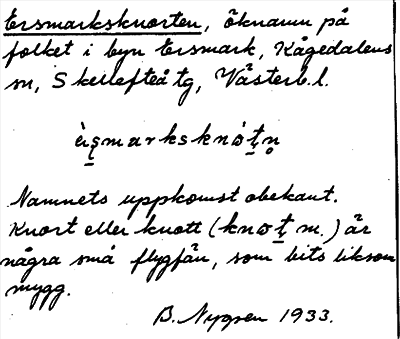 Ersmarksknorten, öknamn på
folket i byn Ersmark, Kågedalens
sn, Skellefteå tg, Västerb.l.
Namnets uppkomst obekant.
Knort eller knott (knoṯ m.) är
några små flygfän, som bits liksom
mygg.
B. Nygren 1933.